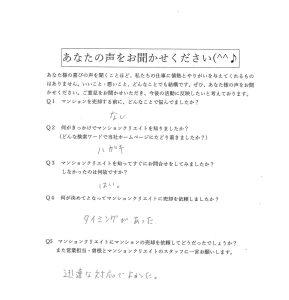 あなたの声をお聞かせください(^^♪
あなた様の喜びの声を聞くことほど、私たちの仕事に情熱とやりがいを与えてくれるもの
はありません。いいこと・悪いこと、どんなことでも結構です。ぜひ、あなた様の声をお聞
かせください。ご意見をお聞かせいただき、今後の活動に反映したいと考えております。
Q1 マンションを売却する前に、どんなことで悩んでましたか?
なし
Q2 何がきっかけでマンションクリエイトを知りましたか?
(どんな検索ワードで当社ホームページにたどり着きましたか?)
ハガキ
Q3 マンションクリエイトを知ってすぐにお問合せをしてみましたか?
しなかったのは何故ですか?
はい。
Q4 何が決めてとなってマンションクリエイトに売却を依頼しましたか?
タイミングがあった
Q5 マンションクリエイトにマンションの売却を依頼してどうだったでしょうか?
また営業担当・皆様とマンションクリエイトのスタッフに一言お願いします。
迅速な対応でよかった。